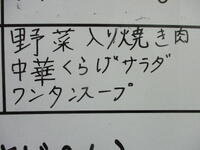 野菜入り焼き肉
中華くらげサラダ
ワンタンスープ